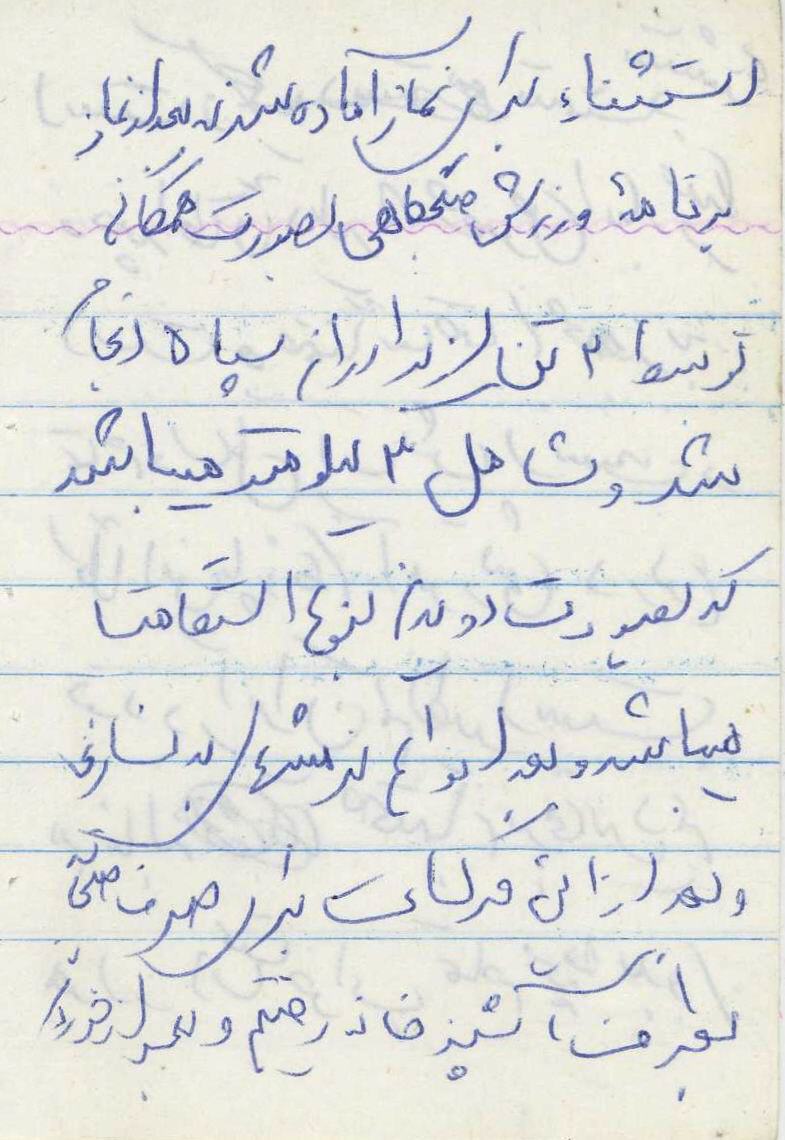 استثناء برای نماز آماده شدند بعد از نماز
برنامه ورزش صبحگاهی بصورت همگانی
توسط ۲ تن از برادران سپاه انجام
شد و شامل ۳ کیلومتر میباشد
که بصورت دو بدن بنوع استقامت
میباشد و بعد انواع نرمشهای بدنسازی
و بعد از این مرکسات برای صرف صبحانه
بطرف آشپزخانه رفتیم و بعد از خوردن